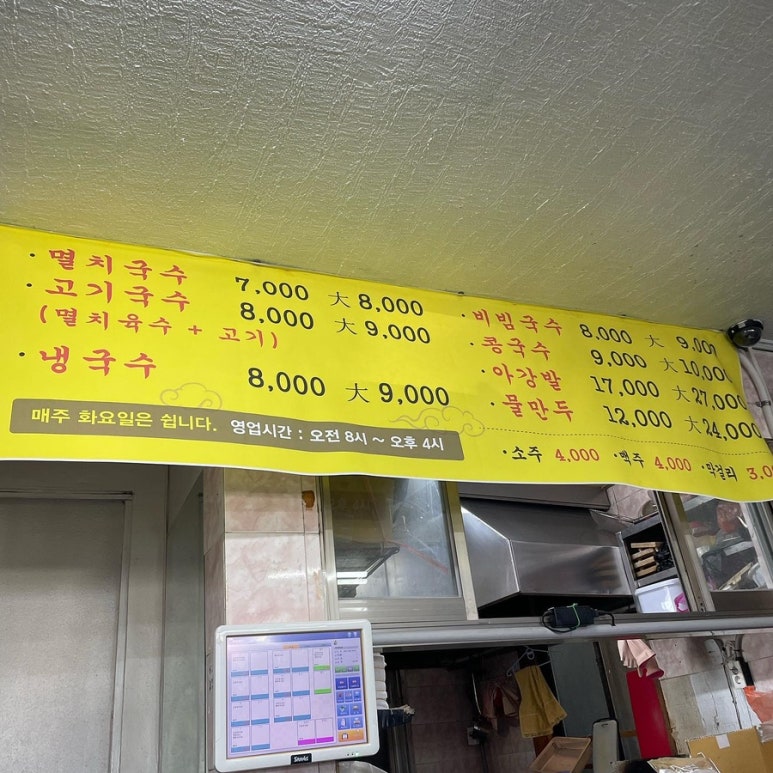 · 멸치국수 7,000 大 8,000
· 고기국수 8,000 大 9,000
(멸치육수 + 고기)
· 냉국수 8,000 大 9,000
매주 화요일은 쉽니다. 영업시간 : 오전 8시 ~ 오후 4시
· 비빔국수 8,000 大 9,000
· 콩국수 9,000 大 10,000
· 아강발 17,000 大 27,000
· 물만두 12,000 大 24,000
· 소주 4,000 · 맥주 4,000 · 막걸리 3,0